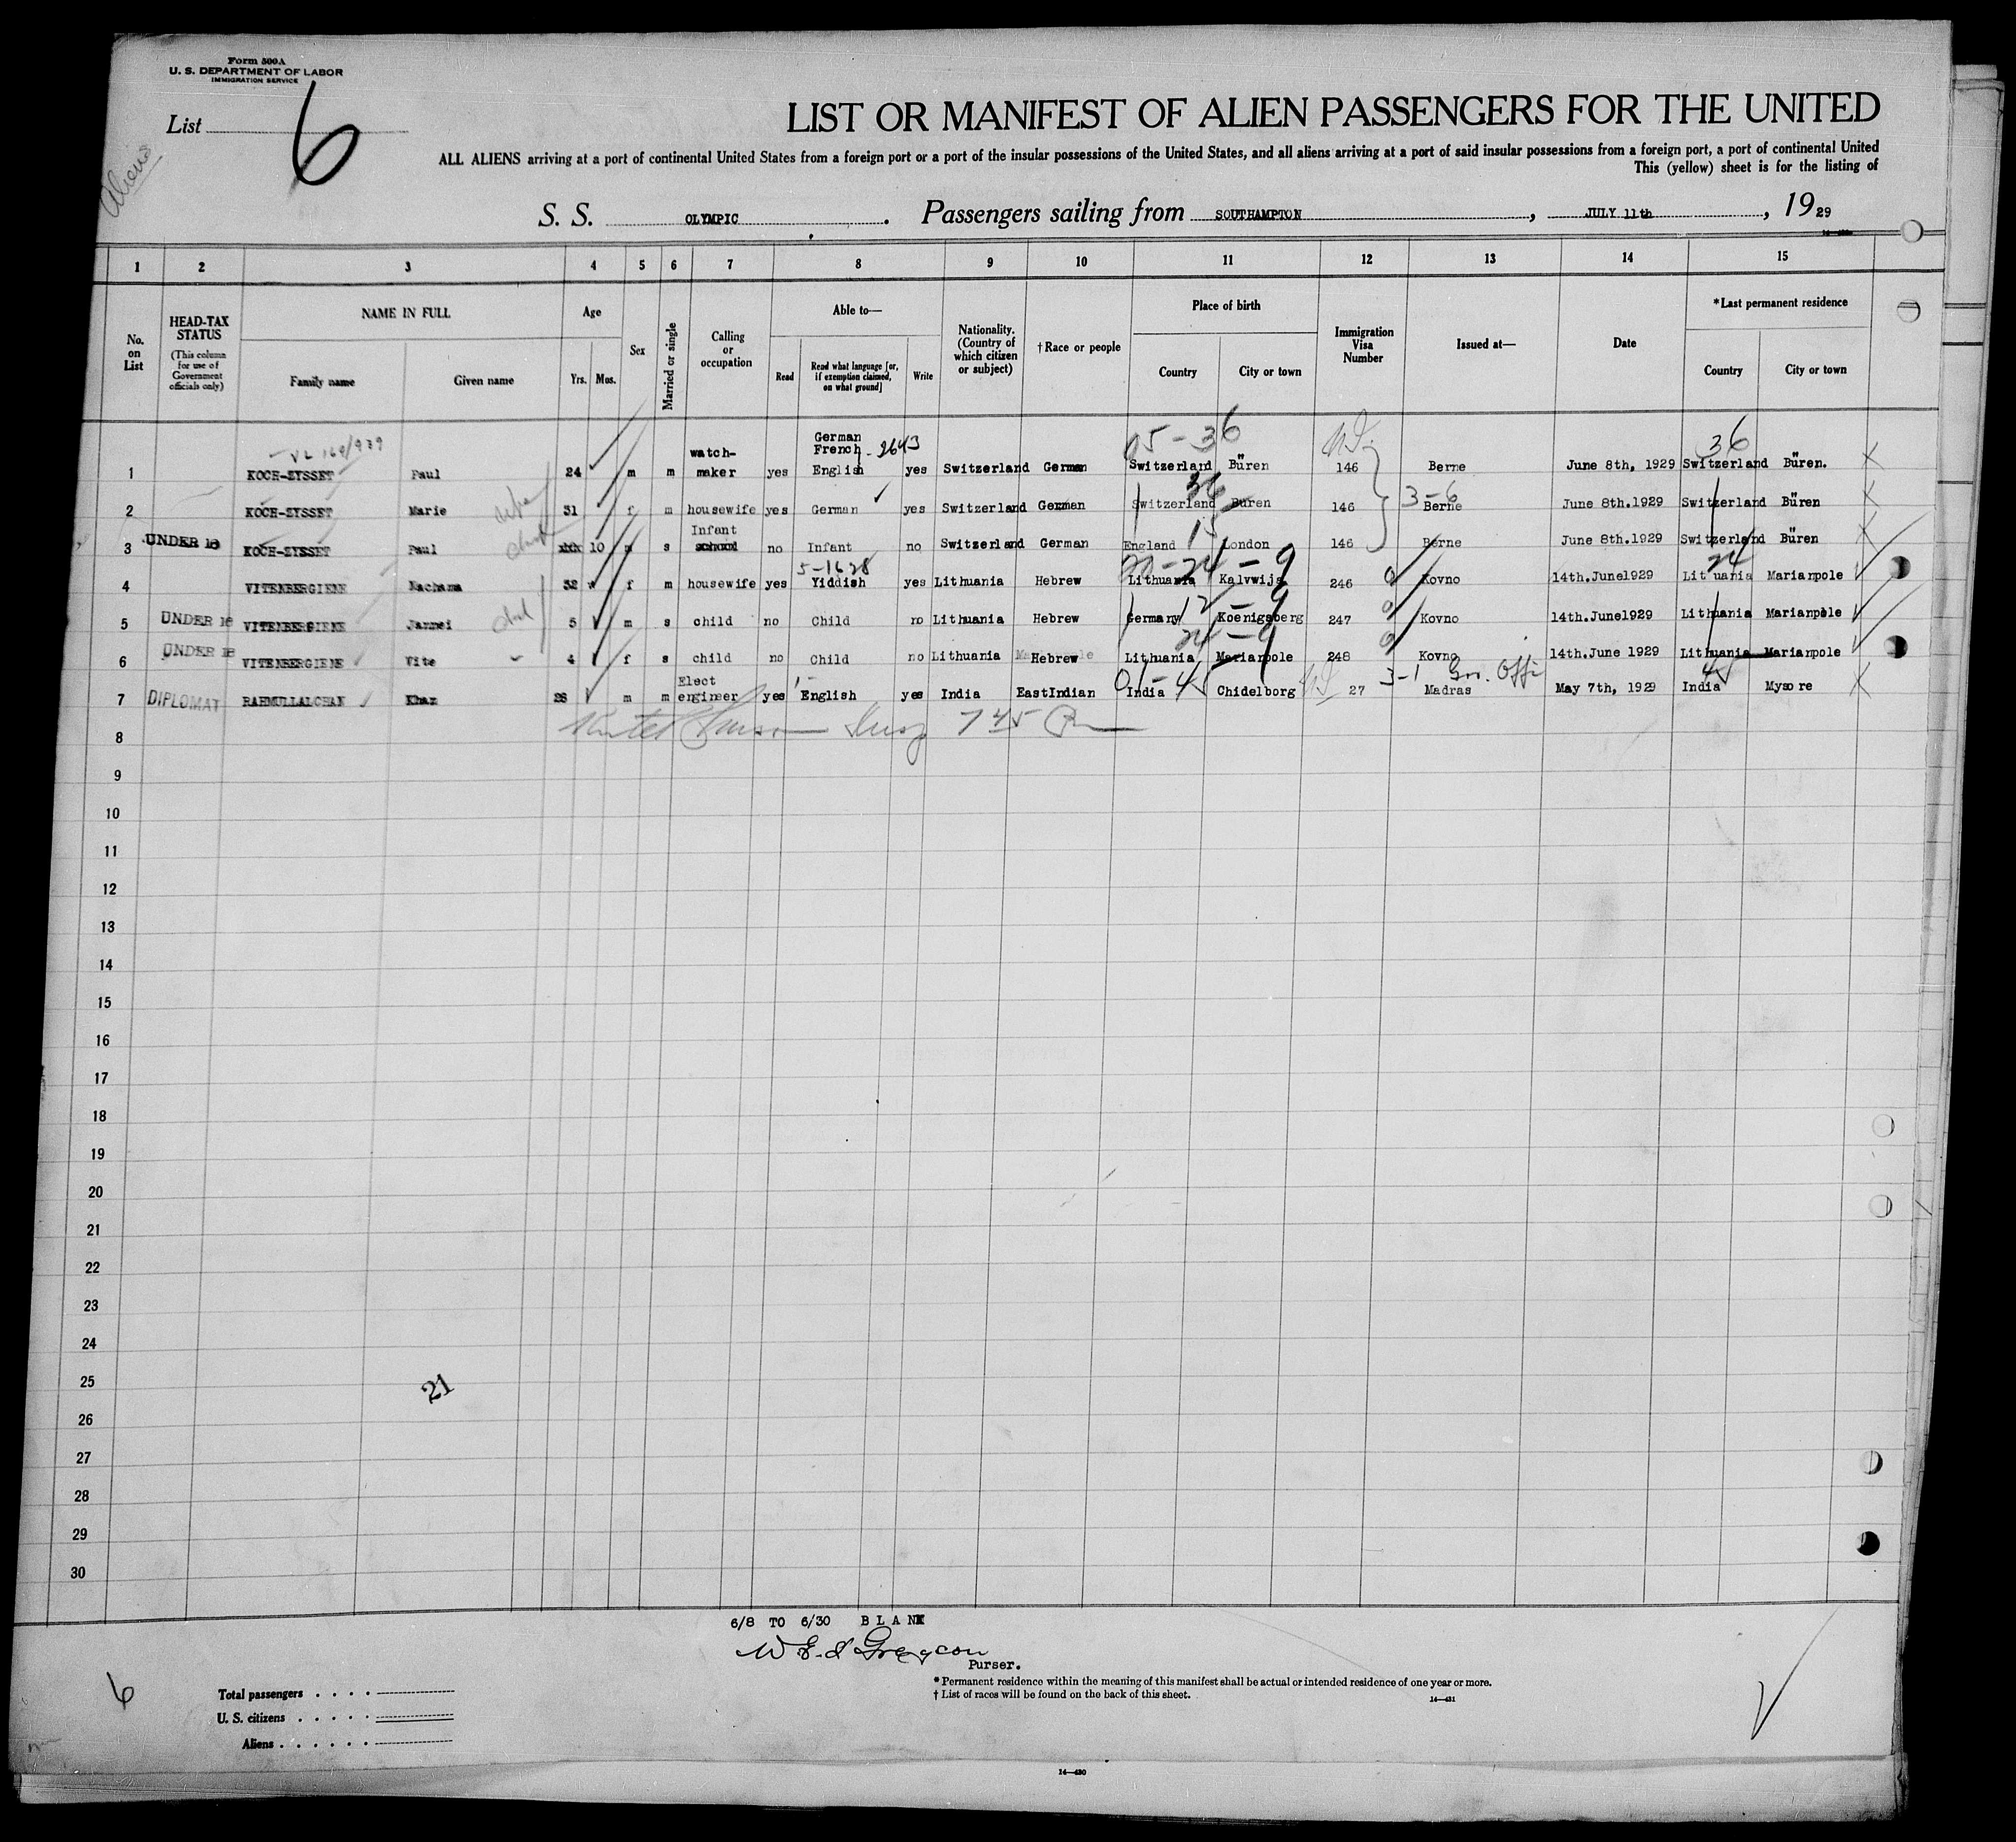 Form 500A
U. S. DEPARTMENT OF LABOR
IMMIGRATION SERVICE
List 6
Aliens
LIST OR MANIFEST OF ALIEN PASSENGERS FOR THE UNITED
ALL ALIENS arriving at a port of continental United States from a foreign port or a port of the insular possessions of the United States, and all aliens arriving at a port of said insular possessions from a foreign port, a port of continental United
This (yellow) sheet is for the listing of
S. S. OLYMPIC. Passengers sailing from SOUTHAMPTON, JULY 11th, 1929
1 2 3 4 5 6 7 8 9 10 11 12 13 14 15
No. on List
HEAD-TAX STATUS (This column for use of Government officials only)
NAME IN FULL
Family name Given name
Age
Yrs. Mos.
Sex
Married or single
Calling or occupation
Able to—
Read
Read what language [or, if exemption claimed, on what ground]
Write
Nationality. (Country of which citizen or subject)
† Race or people
Place of birth
Country City or town
Immigration Visa Number
Issued at—
Date
*Last permanent residence
Country City or town
05-36 36
1 KOCH-ZYSSET Paul 24 m m watch-maker yes German French English 2643 yes Switzerland German Switzerland Büren 146 Berne June 8th, 1929 Switzerland Büren.
36 3-6
2 KOCH-ZYSSET Marie 31 f m housewife yes German yes Switzerland German Switzerland Buren 146 Berne June 8th.1929 Switzerland Büren
15
3 UNDER 16 KOCH-ZYSSET Paul 10 m s Infant no Infant no Switzerland German England London 146 Berne June 8th.1929 Switzerland Büren
5-1628 24-9 24
4 VITENBERGIENE Nachama 32 f m housewife yes Yiddish yes Lithuania Hebrew Lithuania Kalvwija 246 Kovno 14th.June1929 Lithuania Mariampole
12-9
5 UNDER 16 VITENBERGIENE Jannei 5 m s child no Child no Lithuania Hebrew Germany Koenigsberg 247 Kovno 14th.June1929 Lithuania Mariampole
24-9
6 UNDER 16 VITENBERGIENE Vite 4 f s child no Child no Lithuania Hebrew Lithuania Mariampole 248 Kovno 14th.June 1929 Lithuania Mariampole
01-45 3-1 45
7 DIPLOMAT RAHMULLALCHAN Khan 26 m m Elect engineer yes English yes India EastIndian India Chidelborg 27 Madras May 7th, 1929 India Mysore
745
8
9
10
11
12
13
14
15
16
17
18
19
20
21
22
23
24
25
21
26
27
28
29
30
6/8 TO 6/30 BLANK
Purser.
* Permanent residence within the meaning of this manifest shall be actual or intended residence of one year or more.
† List of races will be found on the back of this sheet.
14—431
6
Total passengers
U. S. citizens
Aliens
14—430